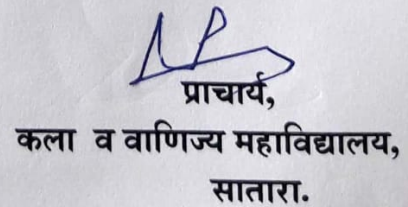 प्राचार्य,
कला व वाणिज्य महाविद्यालय,
सातारा.